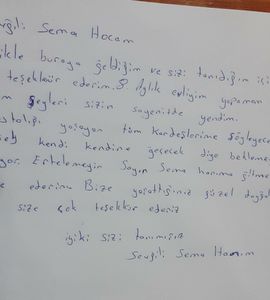 Sema Hocam
buraya geldiğim ve sizi tanıdığım içi
teşekkür ederim. 8 Aylık evliyim yapaman
şeyleri sizin sayenizde yendim.
yaşayan tüm kardeşlerime söyleyece
kendi kendine geçecek diye bekleme
Ertelemeyin Sayın Sema hanıma gitme
ederim Bize yaşattığınız güzel duygu
size çok teşekkür ederiz
iyiki sizi tanımışız
Sevgili Sema Hanım